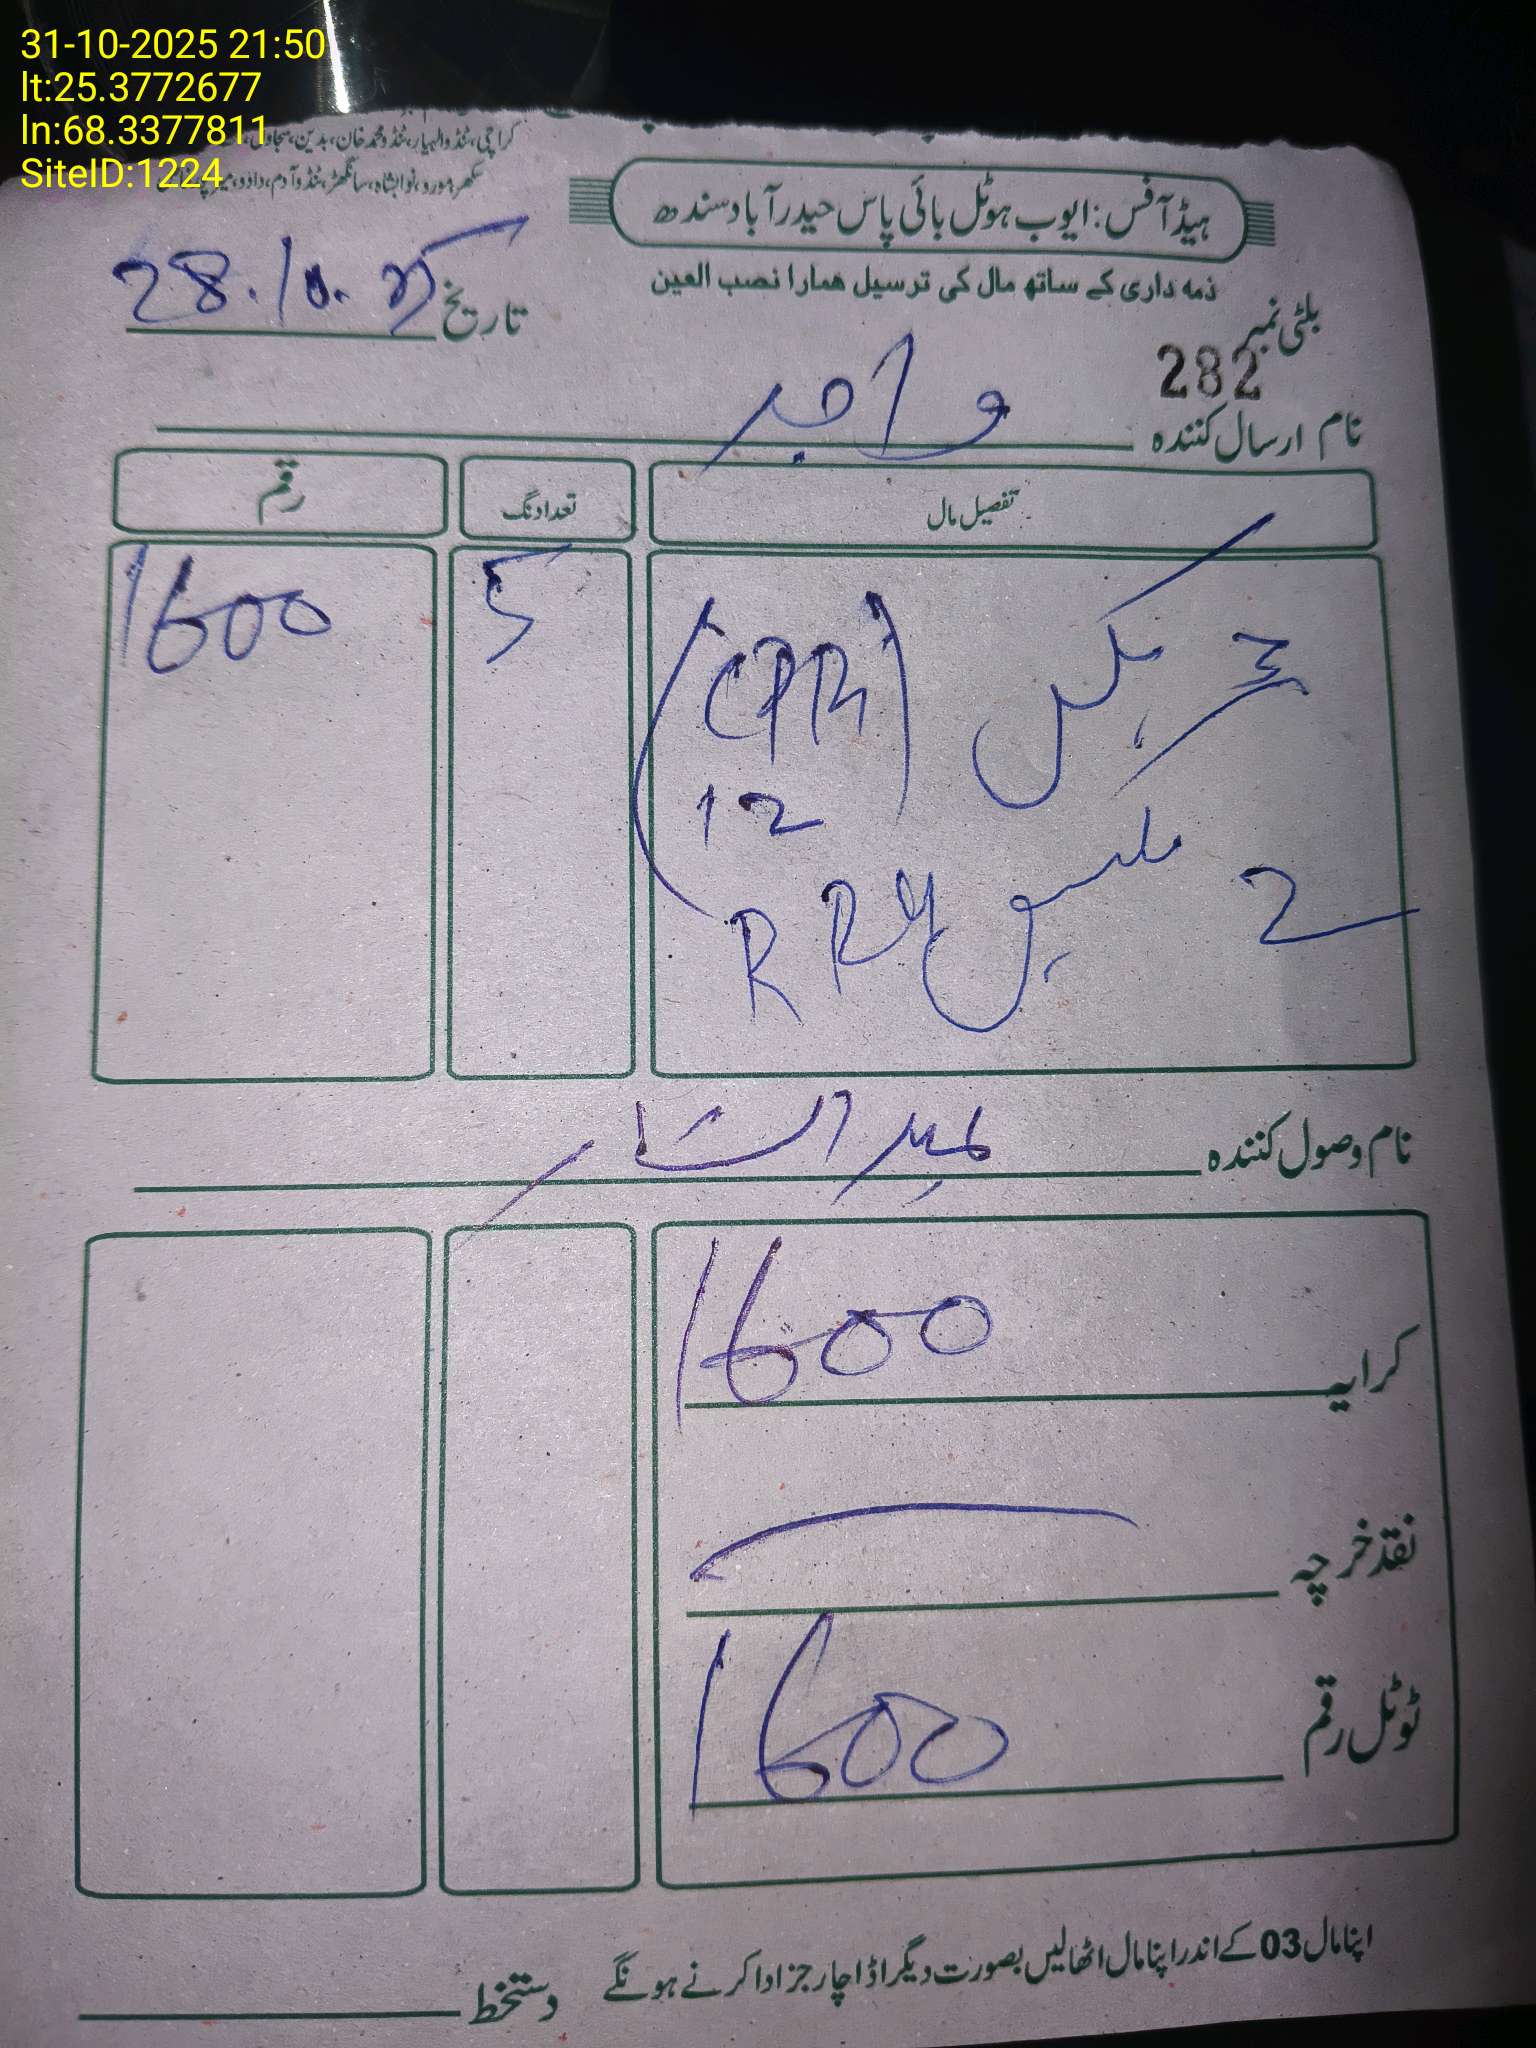 31-10-2025 21:50
lt:25.3772677
ln:68.3377811
SiteID:1224
کراچی، ٹنڈوالہیار، ٹنڈومحمدخان، بدین، سجاول،
سکھر، مورو، نوابشاہ، سانگھڑ، ٹنڈوآدم، دادو،
ہیڈ آفس: ایوب ہوٹل بائی پاس حیدرآباد سندھ
ذمہ داری کے ساتھ مال کی ترسیل ھمارا نصب العین
بلٹی نمبر 282
تاریخ 28.10.25
نام ارسال کنندہ واجد
تفصیل مال تعداد نگ رقم
3 بکس (CPRI 5 1600
12
2 RRU
R
نام وصول کنندہ
کرایہ 1600
نقد خرچہ
ٹوٹل رقم 1600
اپنا مال 03 کے اندر اپنا مال اٹھالیں بصورت دیگر اڈا چارجز ادا کرنے ہونگے
دستخط